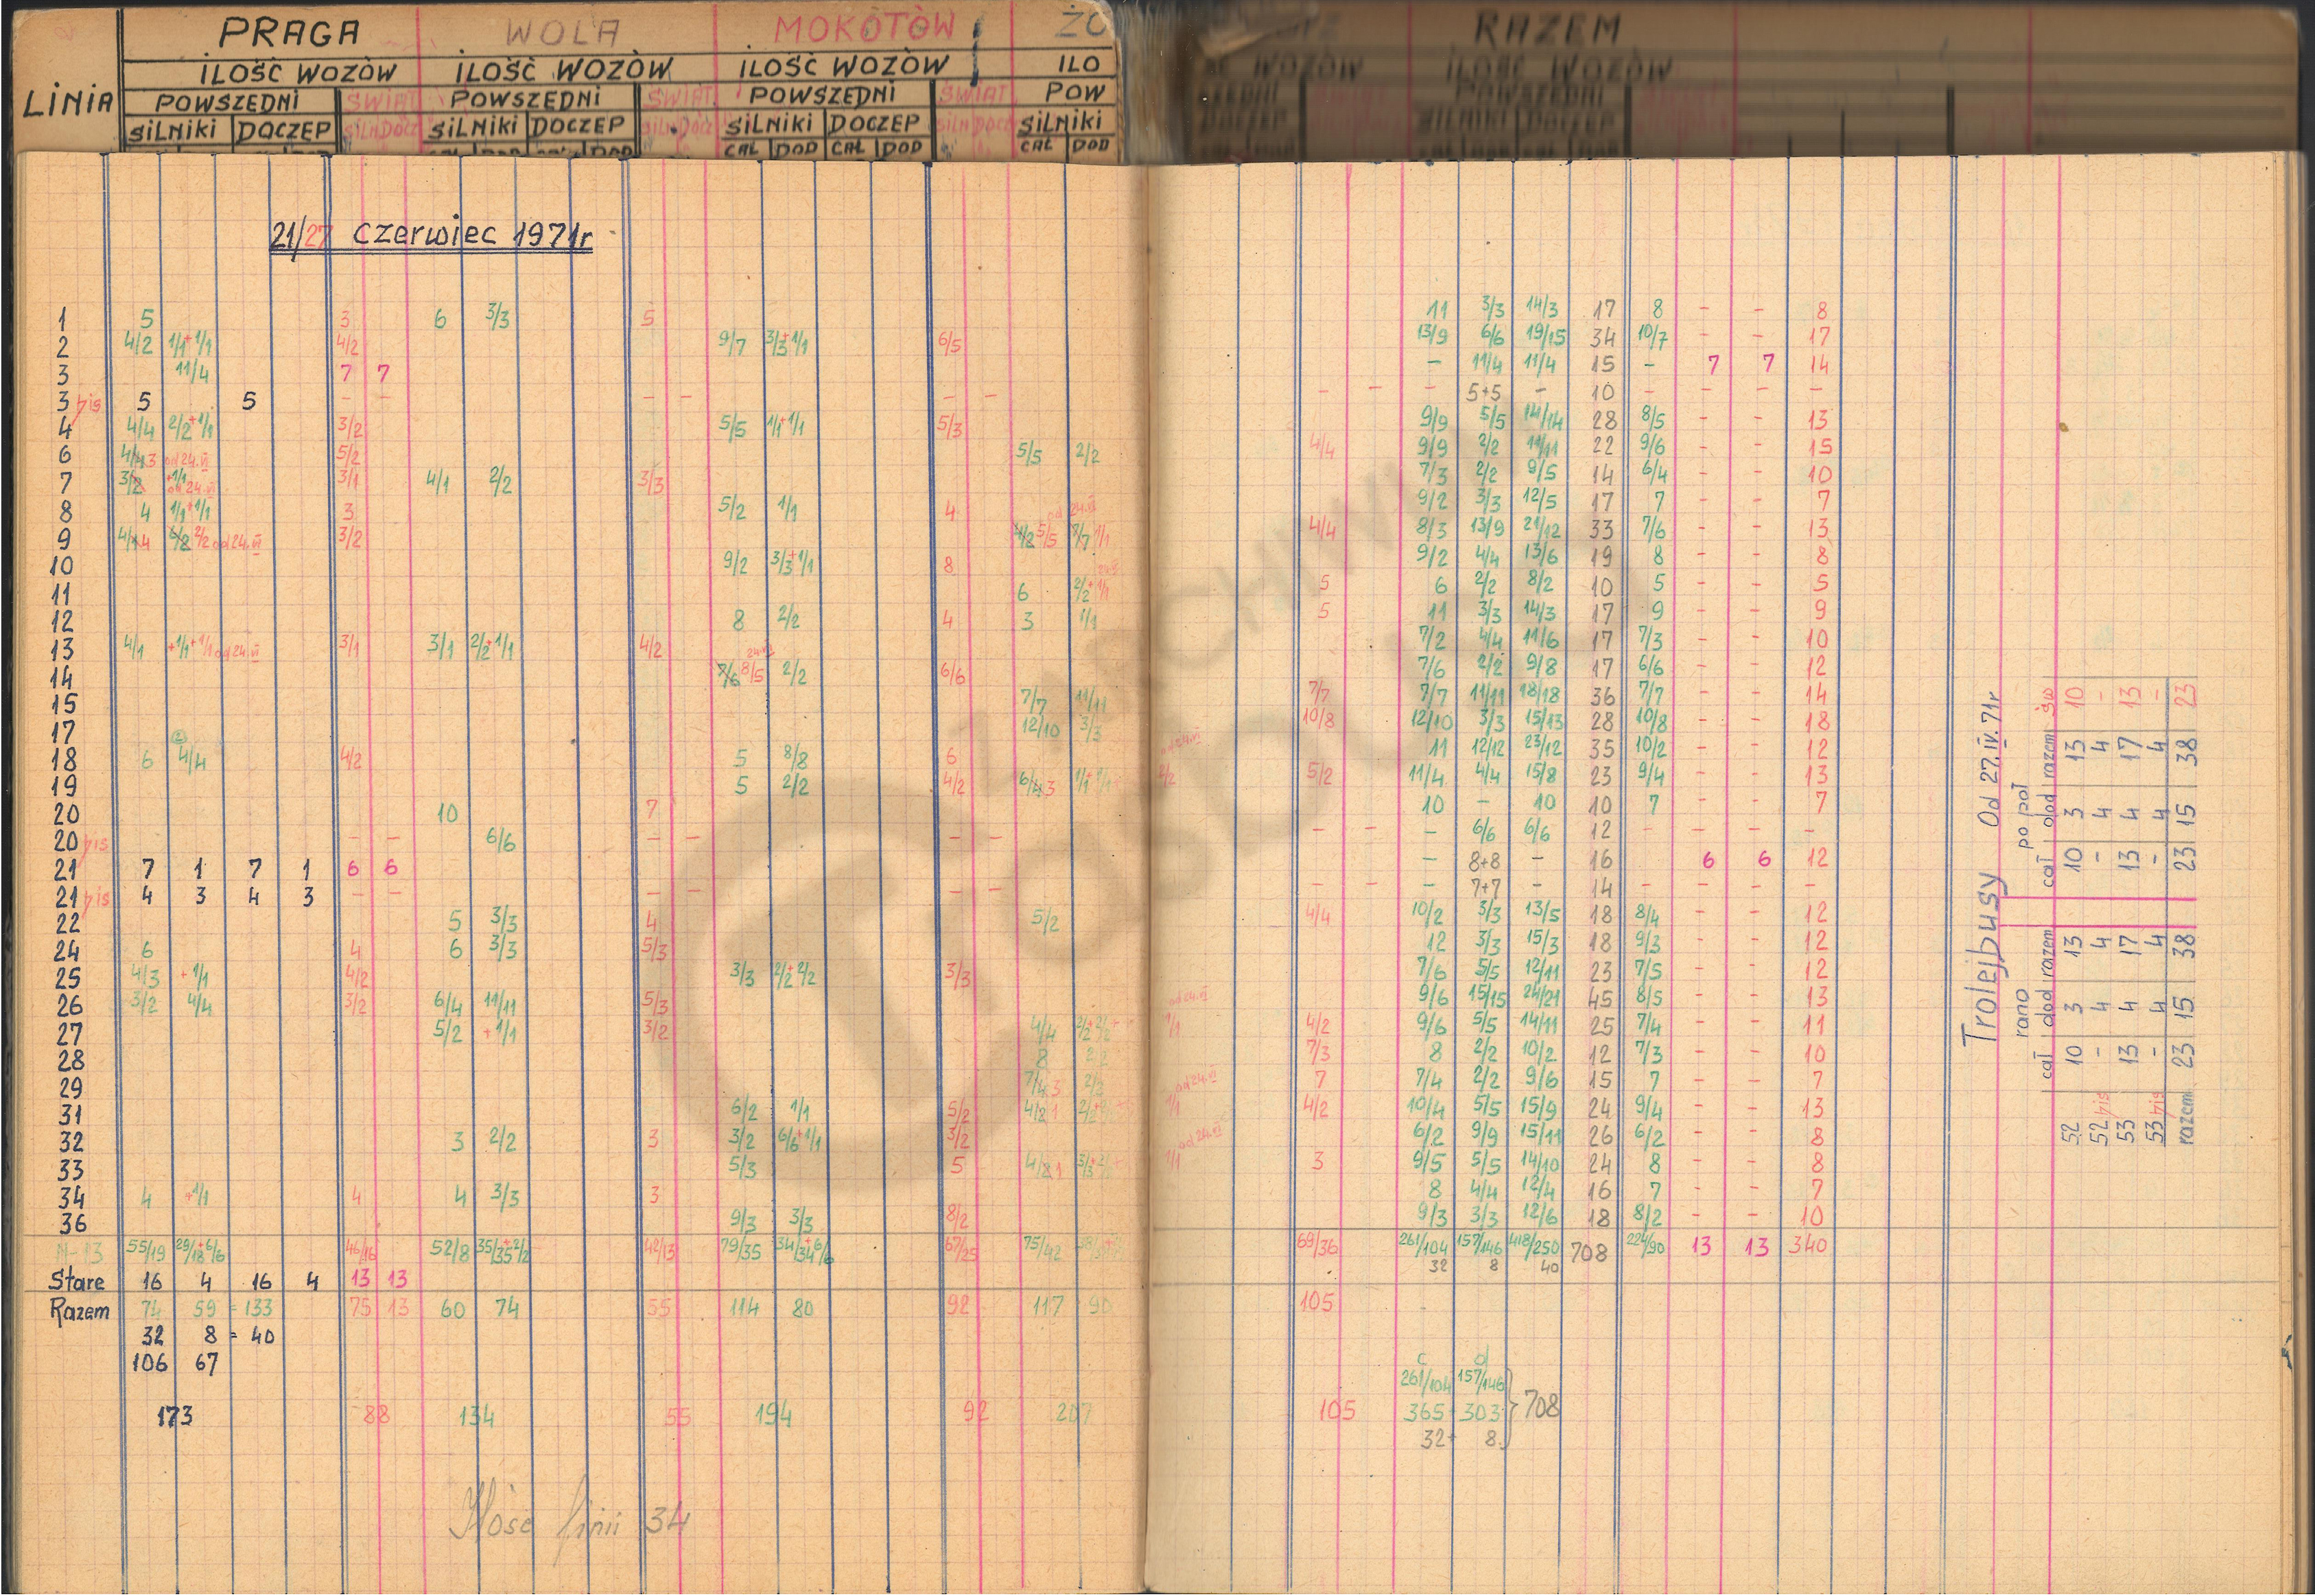 PRAGA WOLA MOKOTÓW ŻO RAZEM
LINIA ILOŚĆ WOZÓW ILOŚĆ WOZÓW ILOŚĆ WOZÓW ILO WOZÓW ILOŚĆ WOZÓW
POWSZEDNI ŚWIĄT POWSZEDNI ŚWIĄT POWSZEDNI ŚWIĄT POW
SILNIKI DOCZEP SILN DOCZ SILNIKI DOCZEP SILN DOCZ SILNIKI DOCZEP SILN DOCZ SILNIKI
CAŁ DOD CAŁ DOD CAŁ DOD
21/27 czerwiec 1971r
1 5 3 6 3/3 5 11 3/3 14/3 17 8 - - 8
2 4/2 1/1+1/1 4/2 9/7 3/3+1/1 6/5 13/9 6/6 19/15 34 10/7 - - 17
3 11/4 7 7 - 11/4 11/4 15 - 7 7 14
3 bis 5 5 - - - - - - - - - 5+5 - 10 - - - -
4 4/4 2/2+1/1 3/2 5/5 1/1+1/1 5/3 9/9 5/5 14/14 28 8/5 - - 13
6 4/4 3 od 24.VI 5/2 5/5 2/2 4/4 9/9 2/2 11/11 22 9/6 - - 15
7 3/2 +1/1 od 24.VI 3/1 4/1 2/2 3/3 7/3 2/2 9/5 14 6/4 - - 10
8 4 1/1+1/1 3 5/2 1/1 4 od 24.VI 9/2 3/3 12/5 17 7 - - 7
9 4/4 4 6/8 2/2 od 24.VI 3/2 4/2 5/5 7/7 1/1 4/4 8/3 13/9 21/12 33 7/6 - - 13
10 9/2 3/3+1/1 8 9/2 4/4 13/6 19 8 - - 8
11 6 2/2+1/1 5 6 2/2 8/2 10 5 - - 5
12 8 2/2 4 3 1/1 5 11 3/3 14/3 17 9 - - 9
13 4/1 +1/1+1/1 od 24.VI 3/1 3/1 2/2+1/1 4/2 7/2 4/4 11/6 17 7/3 - - 10
14 7/6 8/5 24.VI 2/2 6/6 7/6 2/2 9/8 17 6/6 - - 12
15 7/7 11/11 7/7 7/7 11/11 18/18 36 7/7 - - 14
17 12/10 3/3 10/8 12/10 3/3 15/13 28 10/8 - - 18
18 6 4/4 4/2 5 8/8 6 11 12/12 23/12 35 10/2 - - 12
19 5 2/2 4/2 6/4 3 1/1+1/1 od 24.VI 2/2 5/2 11/4 4/4 15/8 23 9/4 - - 13
20 10 7 10 - 10 10 7 - - 7
20 bis - - 6/6 - - - - - - - 6/6 6/6 12 - - - -
21 7 1 7 1 6 6 - 8+8 - 16 6 6 12
21 bis 4 3 4 3 - - - - - - - - - 7+7 - 14 - - - -
22 5 3/3 4 5/2 4/4 10/2 3/3 13/5 18 8/4 - - 12
24 6 4 6 3/3 5/3 12 3/3 15/3 18 9/3 - - 12
25 4/3 +1/1 4/2 3/3 2/2+2/2 3/3 7/6 5/5 12/11 23 7/5 - - 12
26 3/2 4/4 3/2 6/4 11/11 5/3 9/6 15/15 24/21 45 8/5 - - 13
27 5/2 +1/1 3/2 4/4 od 24.VI 1/1 4/2 9/6 5/5 14/11 25 7/4 - - 11
28 8 2/2 7/3 8 2/2 10/2 12 7/3 - - 10
29 7/4 3 2/2 7 7/4 2/2 9/6 15 7 - - 7
31 6/2 1/1 5/2 4/2 1 od 24.VI 1/1 4/2 10/4 5/5 15/9 24 9/4 - - 13
32 3 2/2 3 3/2 6/6+1/1 3/2 6/2 9/9 15/11 26 6/2 - - 8
33 5/3 5 od 24.VI 1/1 3 9/5 5/5 14/10 24 8 - - 8
34 4 +1/1 4 4 3/3 3 8 4/4 12/4 16 7 - - 7
36 9/3 3/3 8/2 9/3 3/3 12/6 18 8/2 - - 10
N-13 55/19 29/18+6/6 46/16 52/8 35/35+2/2 42/13 79/35 34/34+6/6 67/25 75/42 69/36 261/104 157/146 418/250 708 224/90 13 13 340
32 8 40
Stare 16 4 16 4 13 13
Razem 74 59 = 133 75 13 60 74 55 114 80 92 117 90 105
32 8 = 40
106 67
c d
261/104 157/146
173 88 134 55 194 92 207 105 365 303 } 708
32+ 8
Ilość linii 34
Trolejbusy Od 27.IV.71r
rano po poł
cał dod razem cał dod razem św
52 10 3 13 10 3 13 10
52 bis - 4 4 - 4 4 -
53 13 4 17 13 4 17 13
53 bis - 4 4 - 4 4 -
razem 23 15 38 23 15 38 23